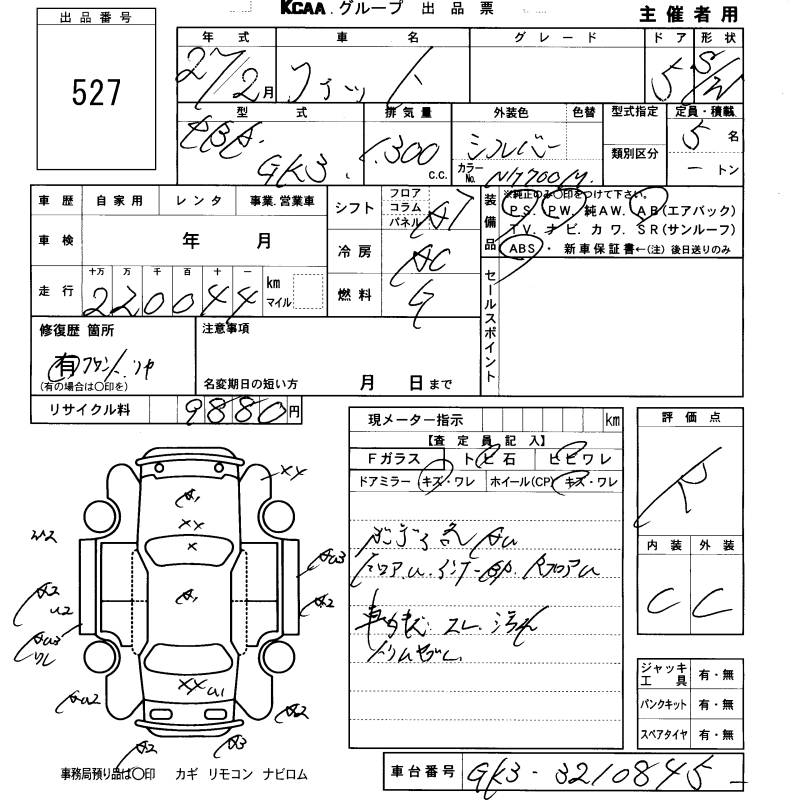 KCAA.グループ 出品票 主催者用
出品番号
527
年式 車名 グレード ドア 形状
27/2月 フィット 5 S/W
型式 排気量 外装色 色替 型式指定 定員・積載
GK3 1.300 c.c. シルバー カラーNo. NH700M 類別区分 5名
ートン
車歴 自家用 レンタ 事業.営業車
シフト フロア コラム パネル AT
装備品 ※純正のみ〇印をつけて下さい。
PS. PW. 純AW. AB(エアバック)
TV. ナビ. カワ. SR(サンルーフ)
ABS・ 新車保証書←(注) 後日送りのみ
車検 年 月
冷房 AC
走行 十万 万 千 百 十 一 km マイル
220044
燃料 G
セールスポイント
修復歴 箇所
有 フロント.リヤ
(有の場合は〇印を)
注意事項
名変期日の短い方 月 日まで
リサイクル料 9880円
現メーター指示 km
【査定員記入】
Fガラス トビ石 ヒビワレ
ドアミラー キズ・ワレ ホイール(CP) キズ・ワレ
評価点
R
内装 外装
C C
XX
A1
XX
X
W2
AU3
A2
U2
A1
A2
AU3
ワレ
XX U1
AU2
A2
A2
A3
ジャッキ工具 有・無
パンクキット 有・無
スペアタイヤ 有・無
事務局預り品は〇印 カギ リモコン ナビロム
車台番号 GK3-3210845